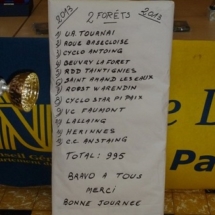 2013 2 FORÊTS 2013
1) U.R. TOURNAI
2) ROUE BASECLOISE
3) CYCLO ANTOING
4) BEUVRY LA FORET
5) RDD TAINTIGNIES
6) SAINT AMAND LES EAUX
7) HORST WARENDIN
8) CYCLO STAR PI PAIX
9) V.C. FAUMONT
LALLAING
HERINNES
C.C. ANSTAING
TOTAL: 995
BRAVO A TOUS
MERCI
BONNE JOURNEE
N
seil Gé
Le
Pa